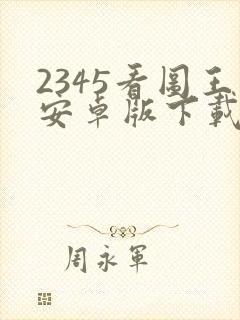 2345看图王
安卓版下载
周永军